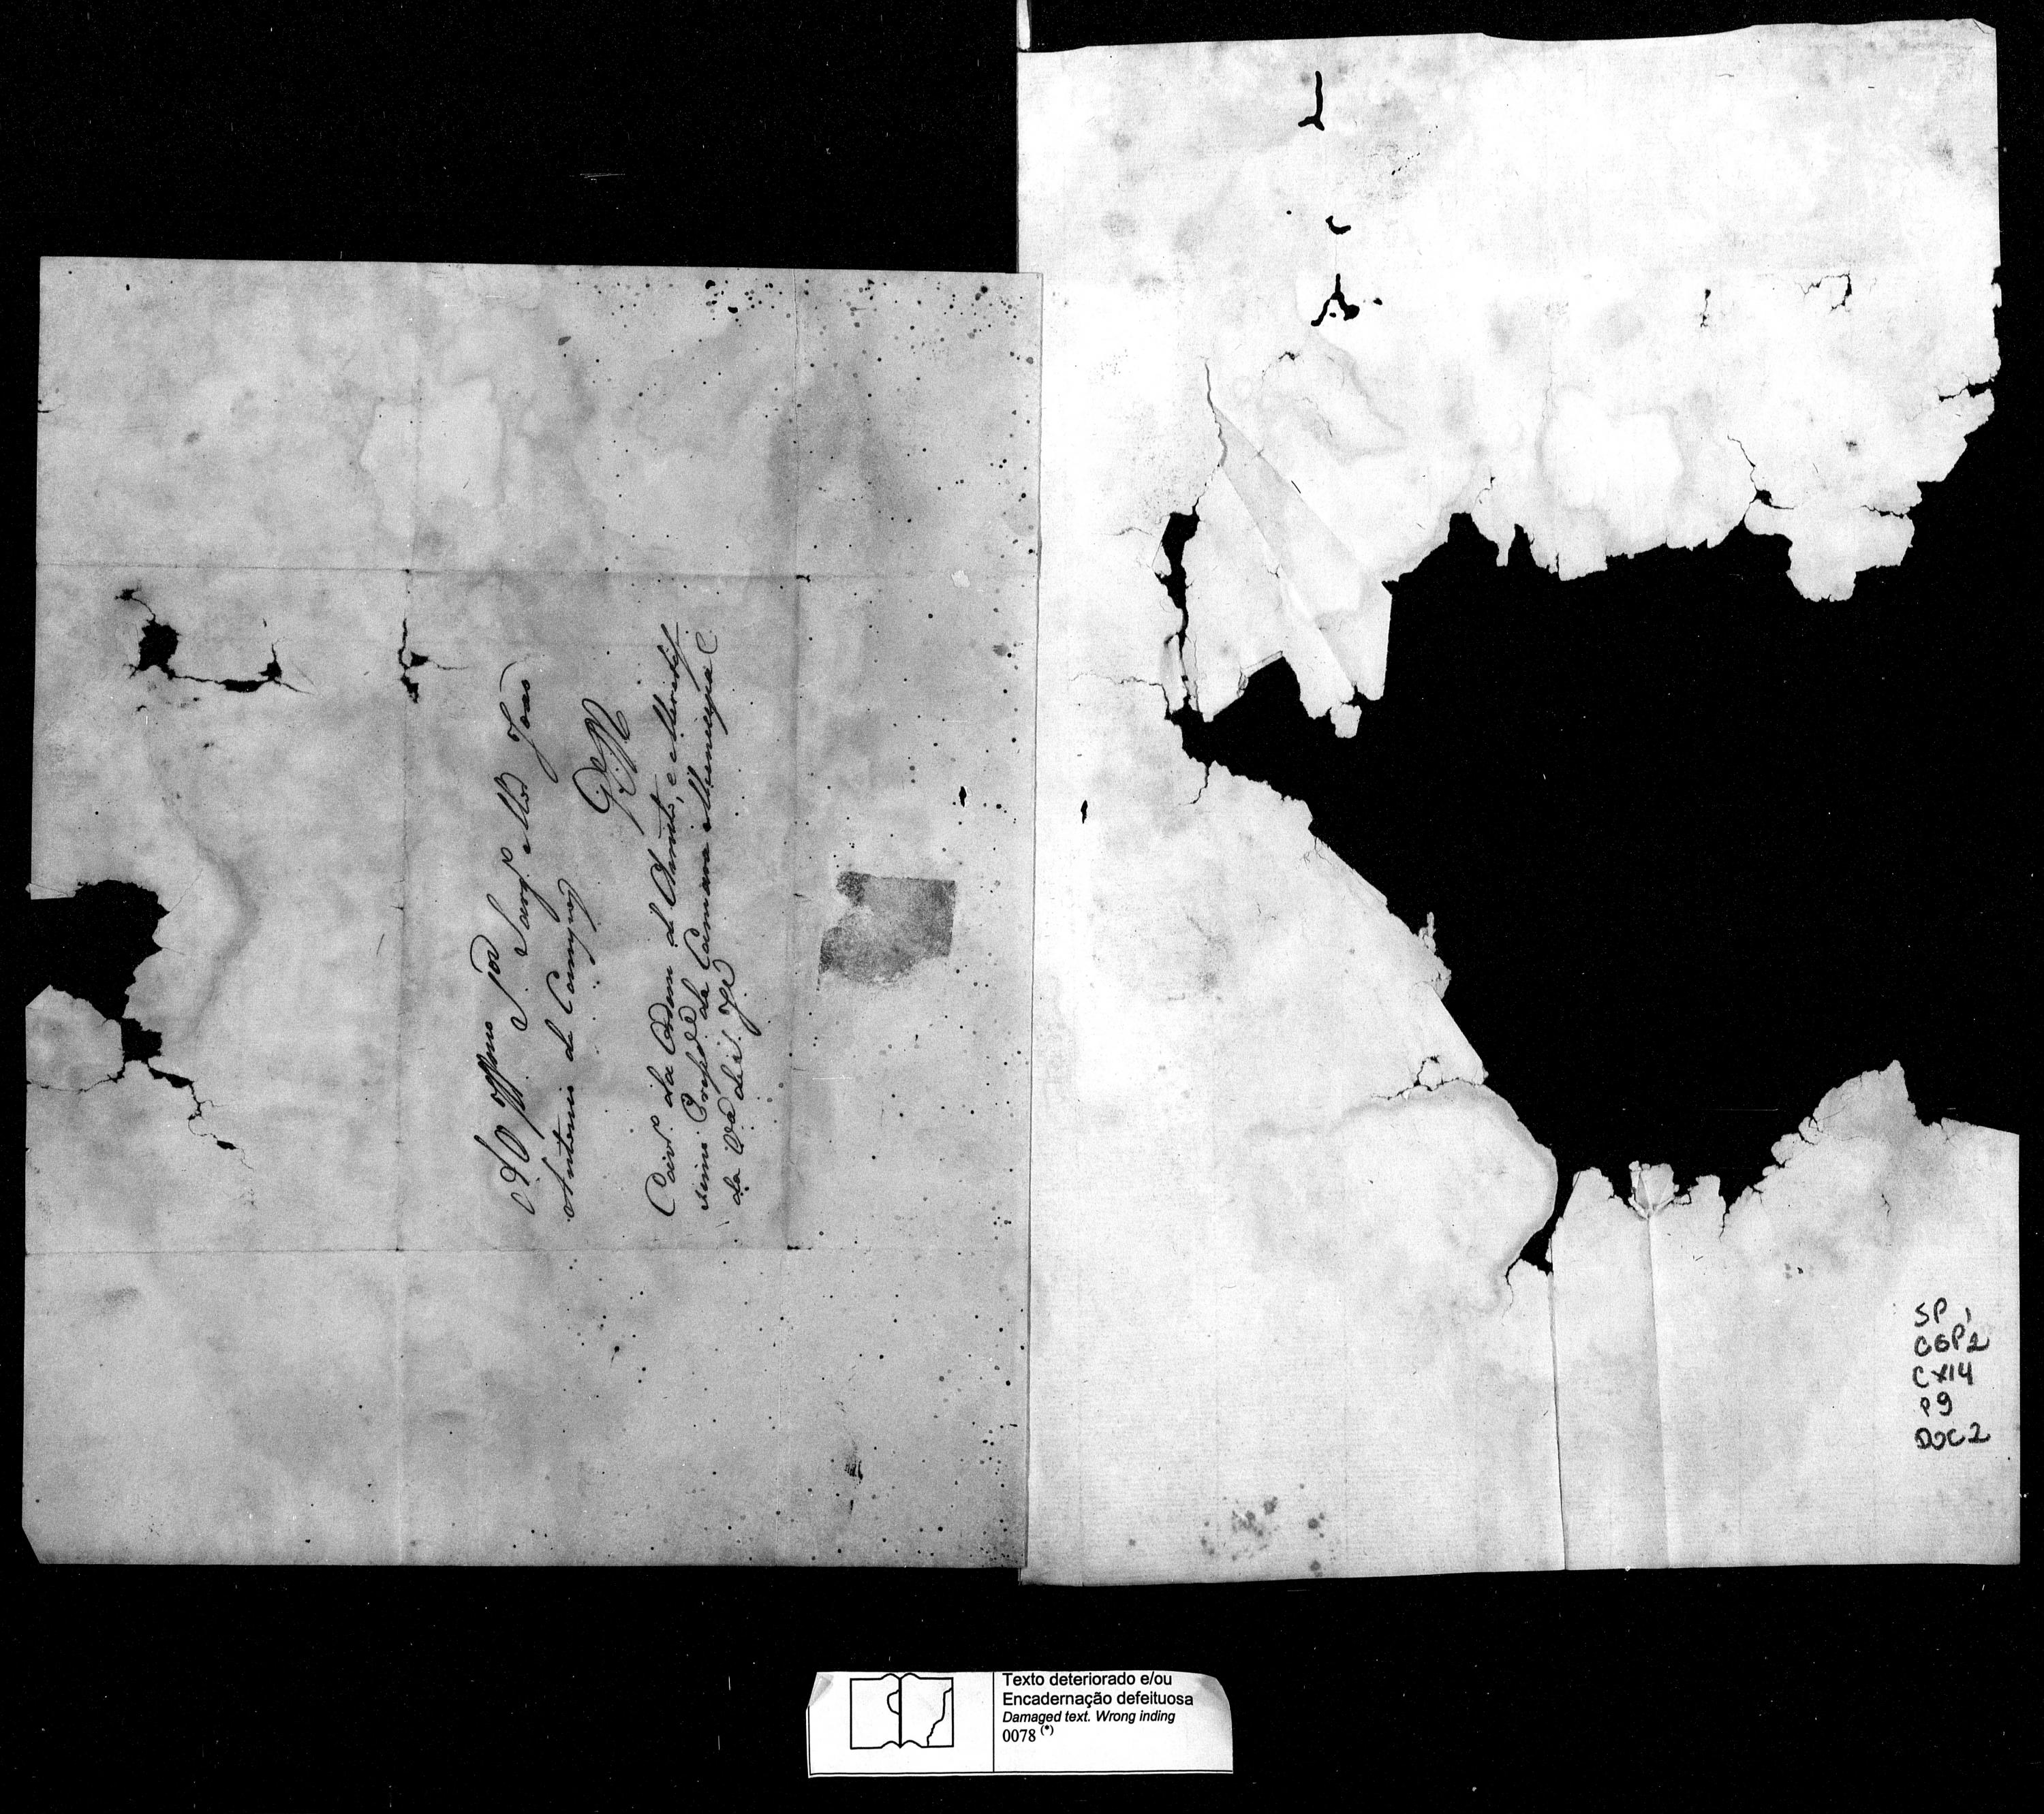 Ao Illmo Snr. Sargto Mor João
Antonio de Campos
Cavro da Ordem de Christo, e Meretis-
simo Presidde da Camara Municipal
da Va de
SP 1
CGP2
CX14
P9
DOC2
Texto deteriorado e/ou
Encadernação defeituosa
Damaged text. Wrong inding
0078 (*)